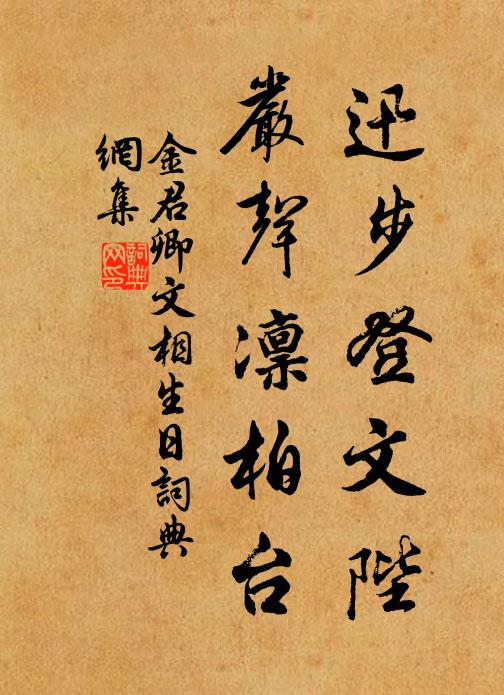 迅步登文陛
嚴聲凛柏台
金君卿文相生日詞典
網集
詞典
网印